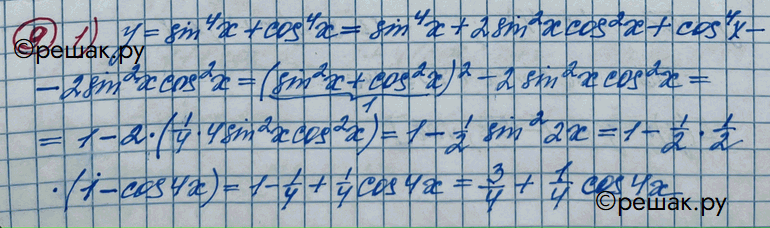 9 1) y = sin⁴x + cos⁴x = sin⁴x + 2sin²x cos²x + cos⁴x –
©решак.ру
– 2sin²x cos²x = (sin²x + cos²x)² – 2 sin²x cos²x =
1
= 1 – 2 · (1/4 · 4sin²x cos²x) = 1 – 1/2 sin² 2x = 1 – 1/2 · 1/2
· (1 – cos4x) = 1 – 1/4 + 1/4 cos4x = 3/4 + 1/4 cos4x
©решак.ру